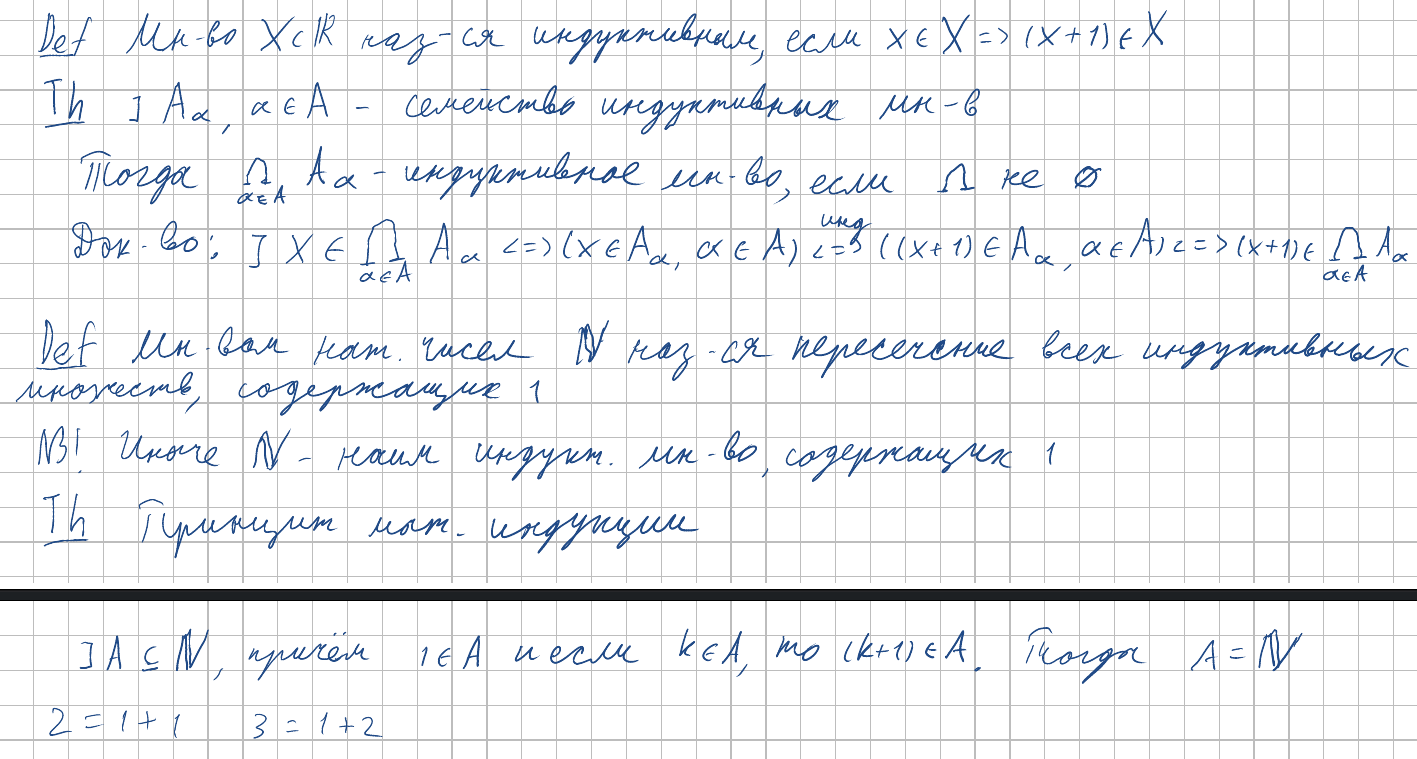 Def Мн-во X⊂ℝ наз-ся индуктивным, если x∈X => (x+1)∈X
Th ] Aα, α∈A - семейство индуктивных мн-в
Тогда ∩ α∈A Aα - индуктивное мн-во, если ∩ не ∅
Док-во: ] x ∈ ∩ α∈A Aα <=> (x∈Aα, α∈A) <=> инд ((x+1)∈Aα, α∈A) <=> (x+1)∈ ∩ α∈A Aα
Def Мн-вом нат. чисел ℕ наз-ся пересечение всех индуктивных
множеств, содержащих 1
NB! Иначе ℕ - наим индукт. мн-во, содержащих 1
Th Принцип мат. индукции
] A ⊆ ℕ, причём 1∈A и если k∈A, то (k+1)∈A. Тогда A = ℕ
2 = 1+1 3 = 1+2